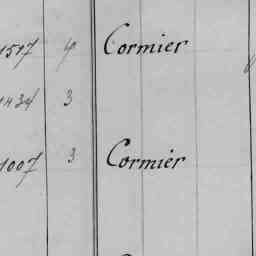 1517 4 Cormier
1434 3
1007 3 Cormier